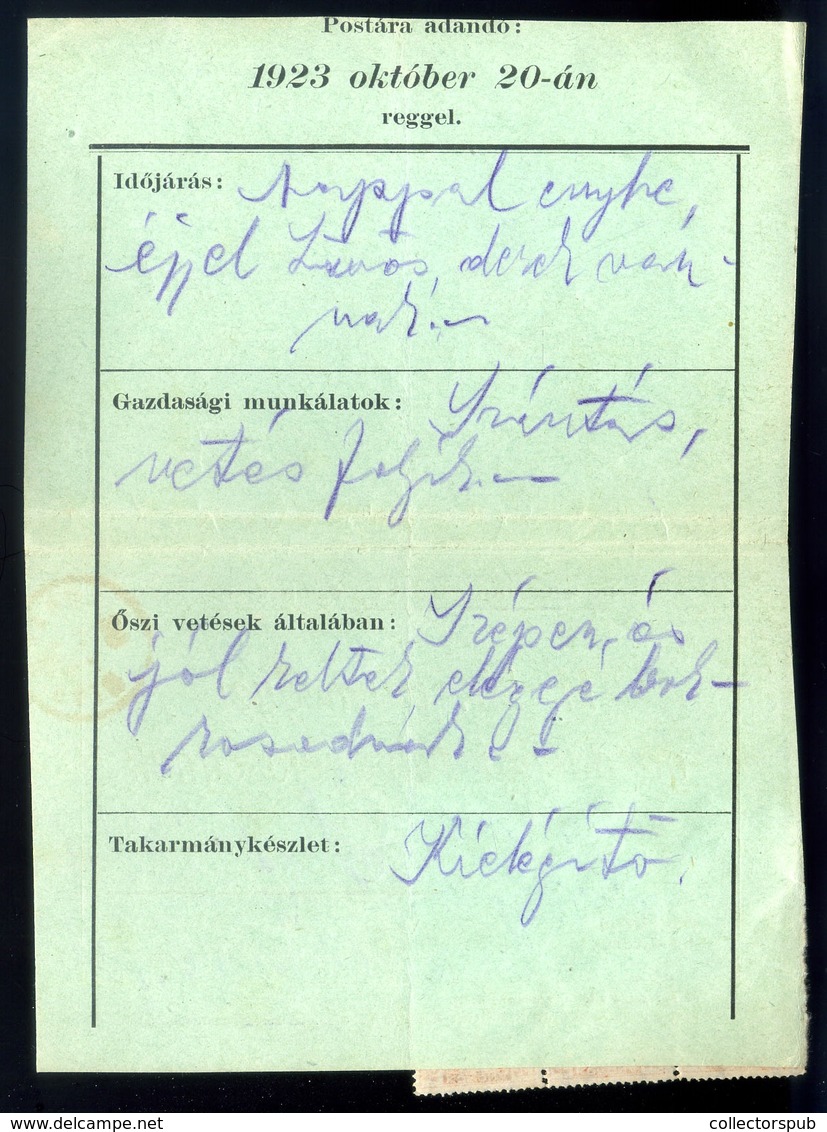 Postára adandó:
1923 október 20-án
reggel.
Időjárás: Nappal enyhe,
éjjel hűvös, derek van-
nak.—
Gazdasági munkálatok: Szántás,
vetés folyik.—
Őszi vetések általában: Szépen, és
jól keltek eléggé bok-
rosodnak. –
Takarmánykészlet: Kielégítő.
collectorspub